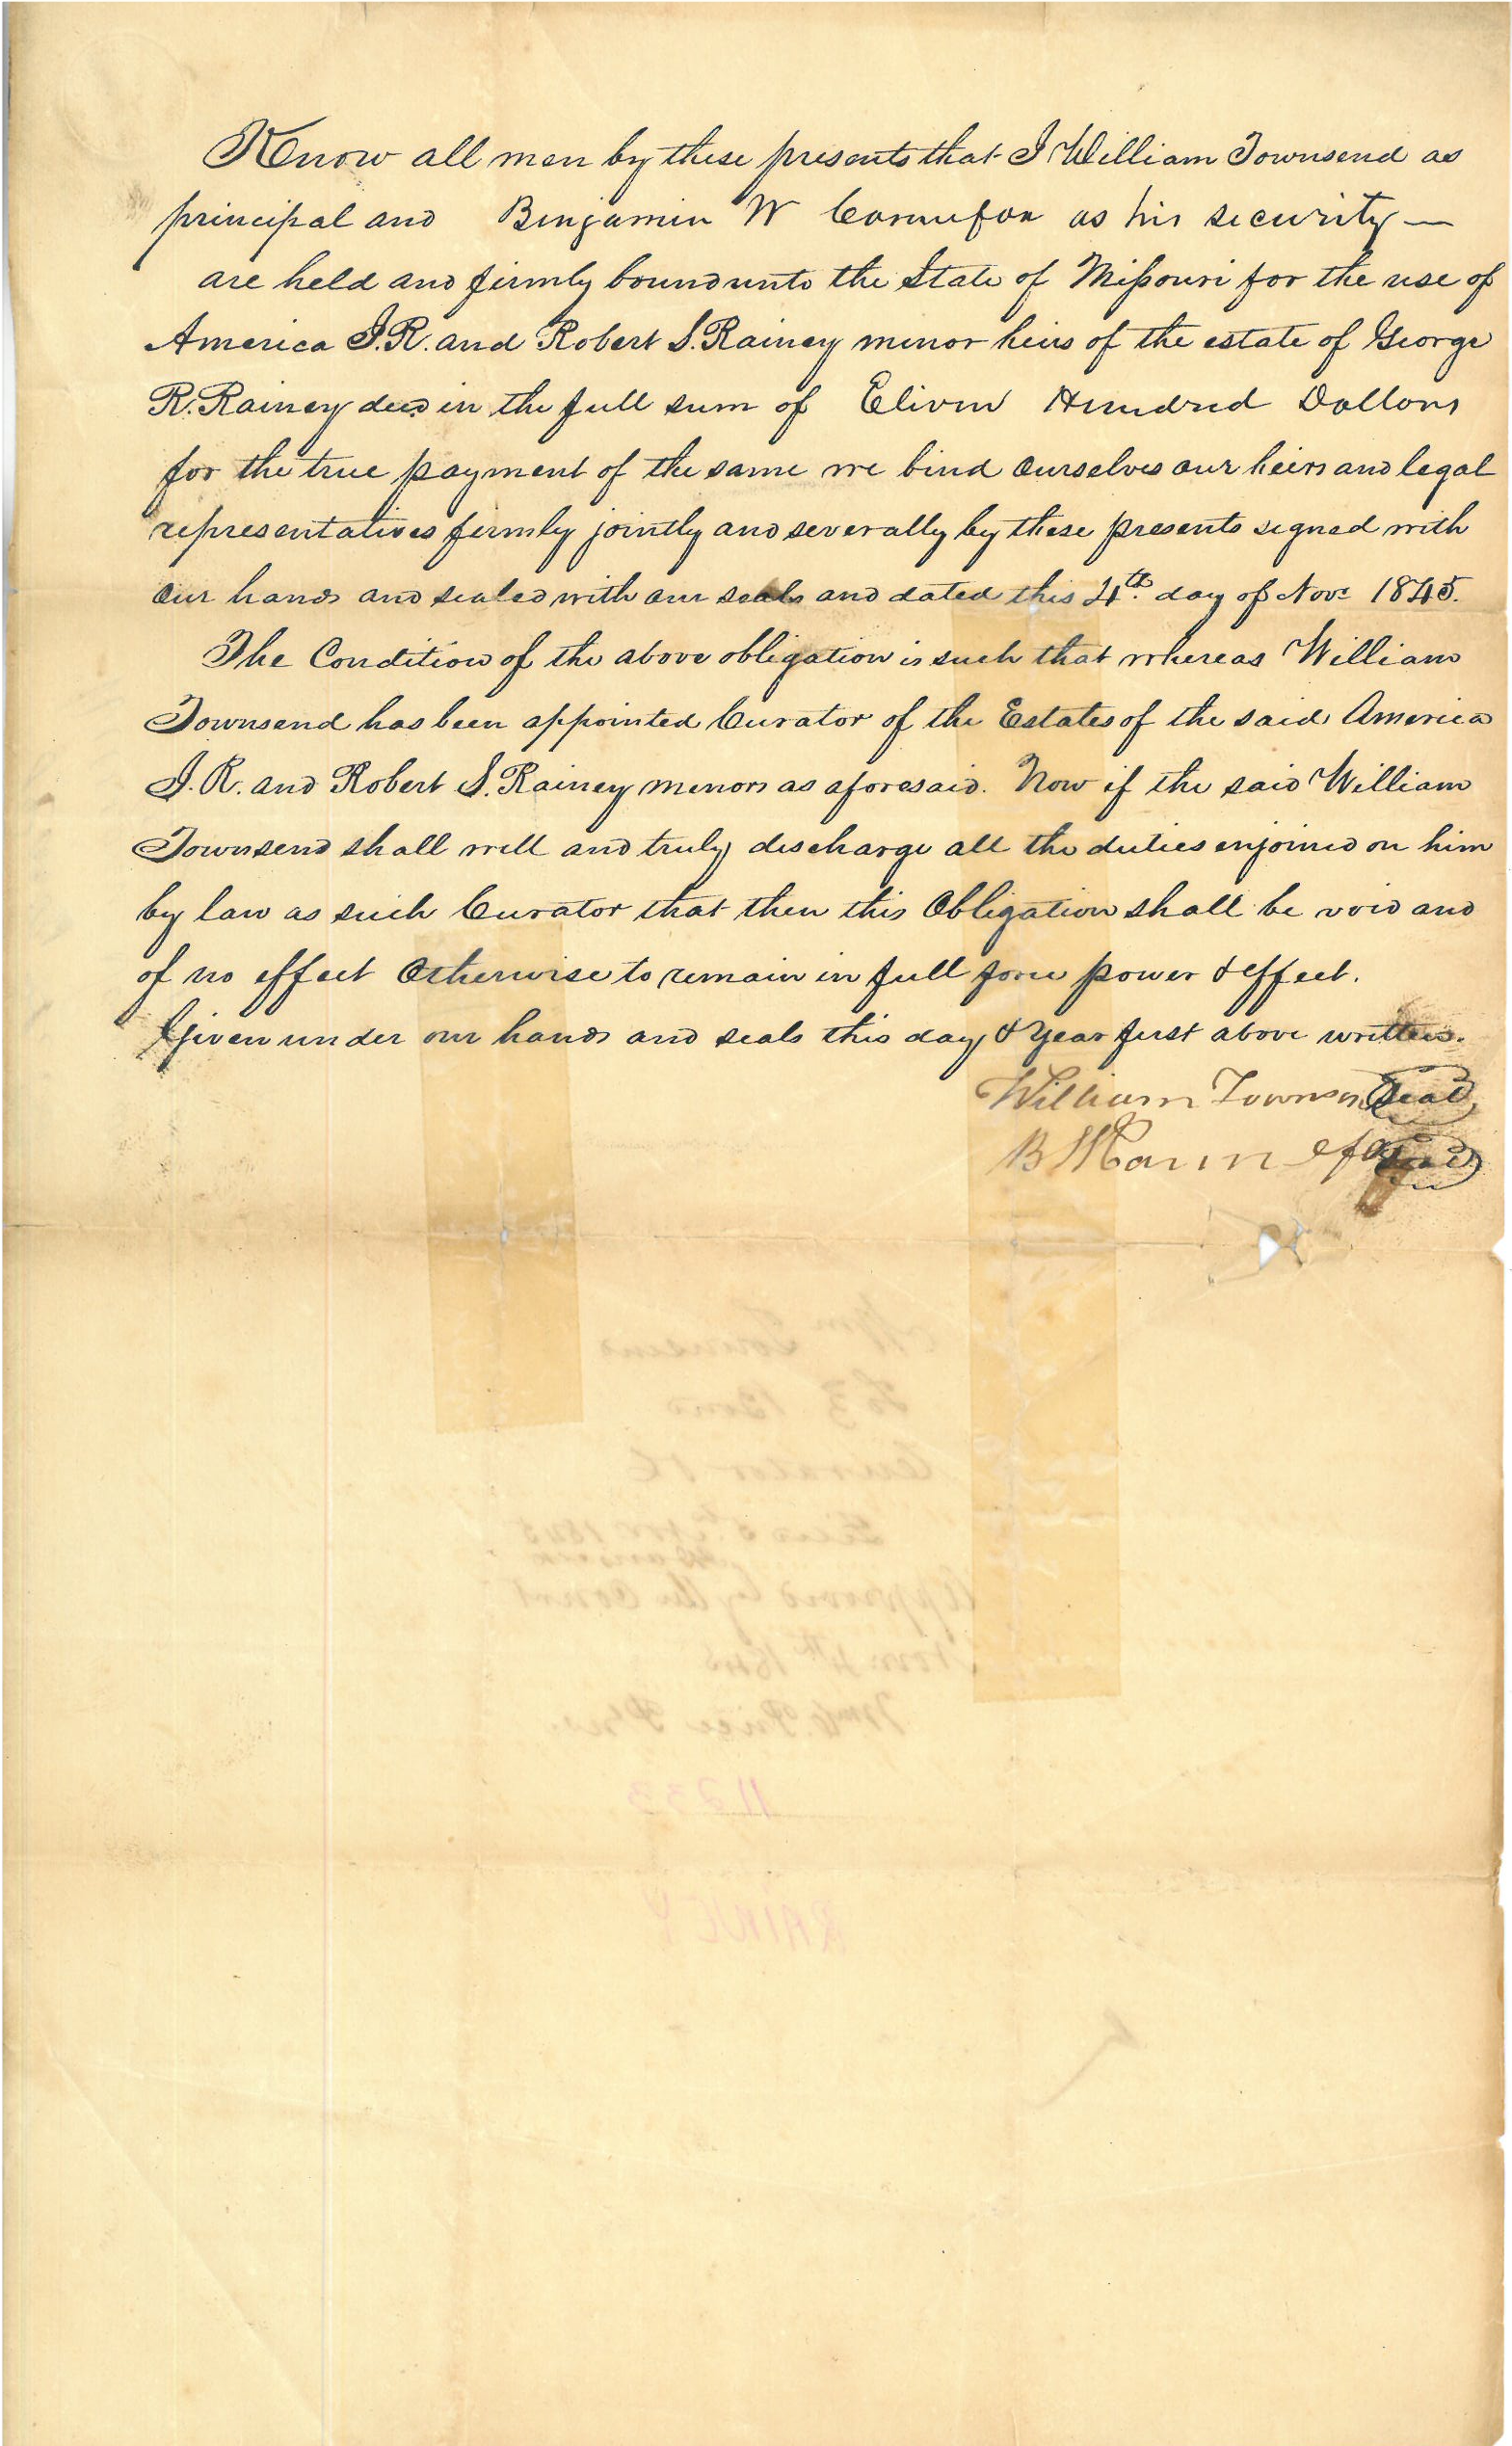 Know all men by these presents that I William Townsend as
principal and Benjamin W Cannefax as his security —
are held and firmly bound unto the State of Missouri for the use of
America I.R. and Robert S. Rainey minor heirs of the estate of George
R. Rainey decd in the full sum of Eliven Hundred Dollars
for the true payment of the same we bind ourselves our heirs and legal
representatives firmly jointly and severally by these presents signed with
our hands and sealed with our seals and dated this 4th day of Nov: 1845.
The Condition of the above obligation is such that whereas William
Townsend has been appointed Curator of the Estates of the said America
I.R. and Robert S. Rainey minors as aforesaid. Now if the said William
Townsend shall well and truly discharge all the duties enjoined on him
by law as such Curator that then this Obligation shall be void and
of no effect Otherwise to remain in full force power & effect.
Given under our hands and seals this day & Year first above written.
William Townsend Seal
B W Cannefax Seal
Wm Townsend
To } Bond
Curator &C
Filed 5th Nov 1845
Approved by the Court
Nov 4th 1845
11233
RAINEY